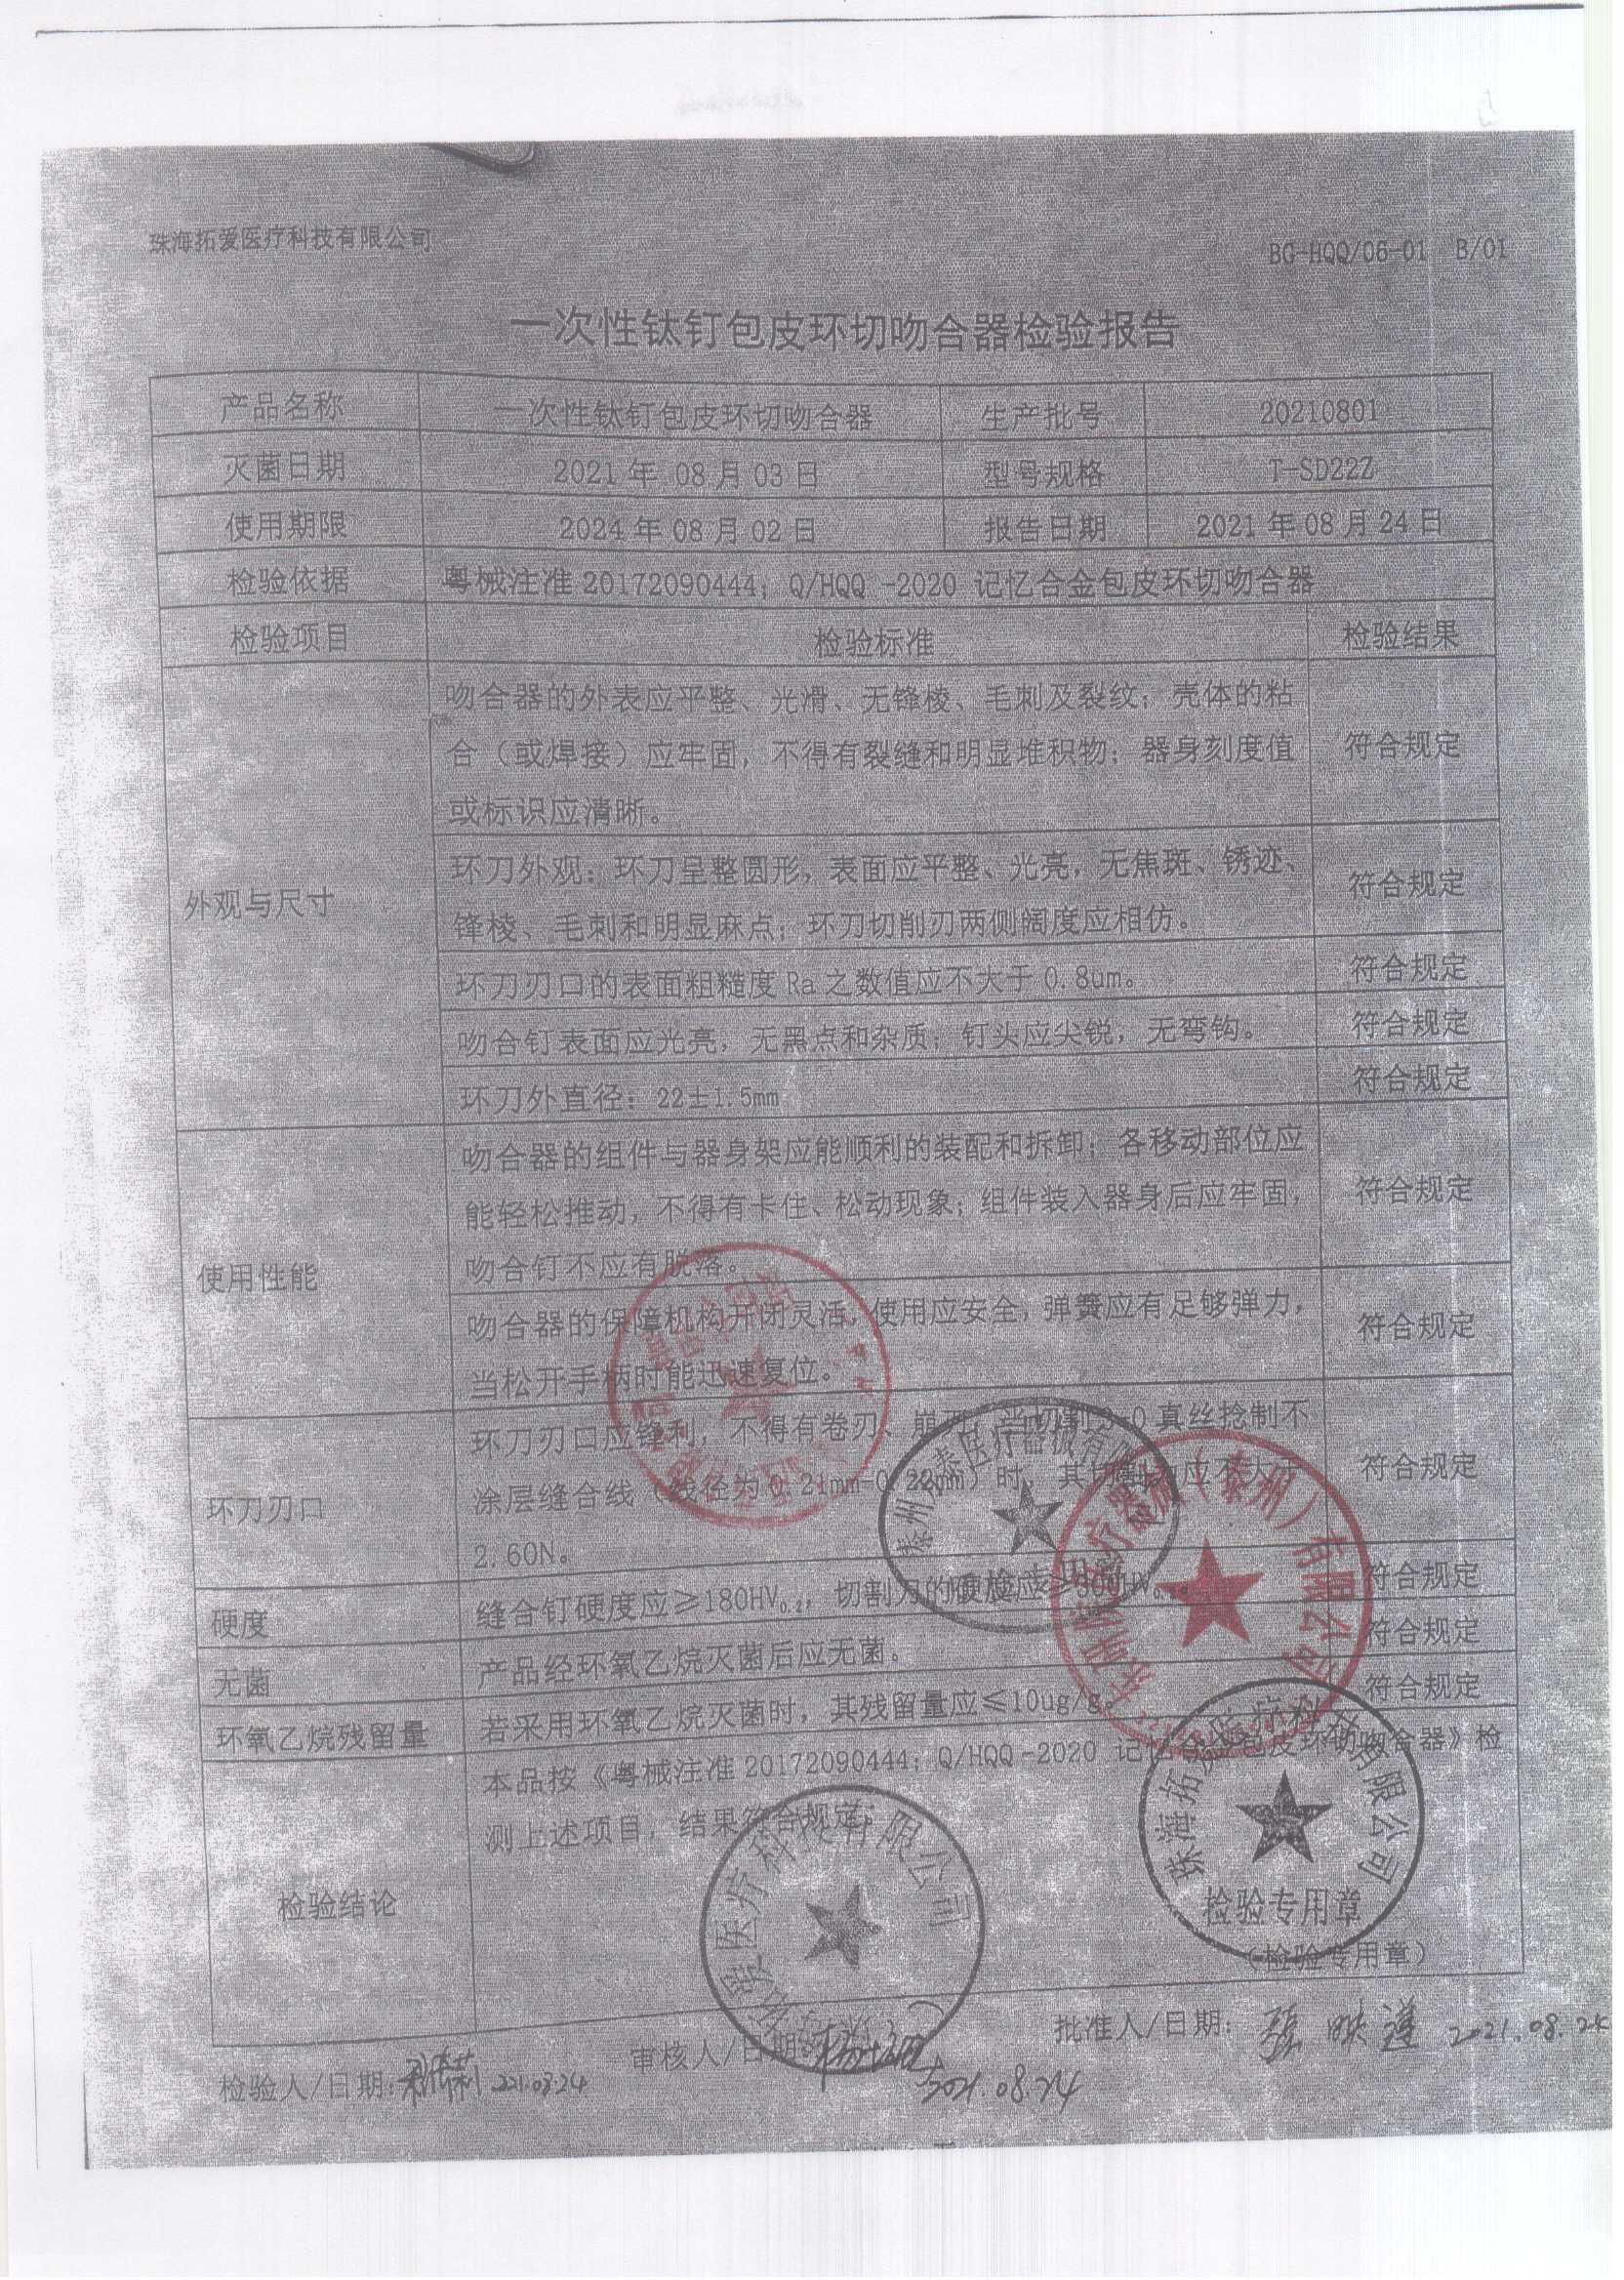 珠海拓爱医疗科技有限公司
BG-HQQ/06-01 B/01
一次性钛钉包皮环切吻合器检验报告
产品名称 一次性钛钉包皮环切吻合器 生产批号 20210801
灭菌日期 2021年 08月 03日 型号规格 T-SD22Z
使用期限 2024年 08月 02日 报告日期 2021年08月24日
检验依据 粤械注准 20172090444；Q/HQQ -2020 记忆合金包皮环切吻合器
检验项目 检验标准 检验结果
外观与尺寸
吻合器的外表应平整、光滑、无锋棱、毛刺及裂纹；壳体的粘
合（或焊接）应牢固，不得有裂缝和明显堆积物；器身刻度值
或标识应清晰。
符合规定
环刀外观：环刀呈整圆形，表面应平整、光亮，无焦斑、锈迹、
锋棱、毛刺和明显麻点；环刀切削刃两侧阔度应相仿。
符合规定
环刀刃口的表面粗糙度 Ra 之数值应不大于 0.8um。 符合规定
吻合钉表面应光亮，无黑点和杂质；钉头应尖锐，无弯钩。 符合规定
环刀外直径：22±1.5mm 符合规定
使用性能
吻合器的组件与器身架应能顺利的装配和拆卸；各移动部位应
能轻松推动，不得有卡住、松动现象；组件装入器身后应牢固，
吻合钉不应有脱落。
符合规定
吻合器的保障机构开闭灵活，使用应安全，弹簧应有足够弹力，
当松开手柄时能迅速复位。
符合规定
环刀刃口
环刀刃口应锋利，不得有卷刃、崩刃，当切割 3-0 真丝捻制不
涂层缝合线（线径为 0.21mm-0.22mm）时，其切割力应不大于
2.60N。
符合规定
硬度 缝合钉硬度应≥180HV0.2，切割刀的硬度应≥300HV 符合规定
无菌 产品经环氧乙烷灭菌后应无菌。 符合规定
环氧乙烷残留量 若采用环氧乙烷灭菌时，其残留量应≤10ug/g。 符合规定
检验结论
本品按《粤械注准 20172090444；Q/HQQ -2020 记忆合金包皮环切吻合器》检
测上述项目，结果符合规定。
泰医疗器械有限
质检专用章
医疗器械（泰州）有限公司
医疗科技有限公司
珠海拓爱医疗科技有限公司
检验专用章
（检验专用章）
检验人/日期： 2021.08.24
审核人/日期： 2021.08.24
批准人/日期： 2021.08.24